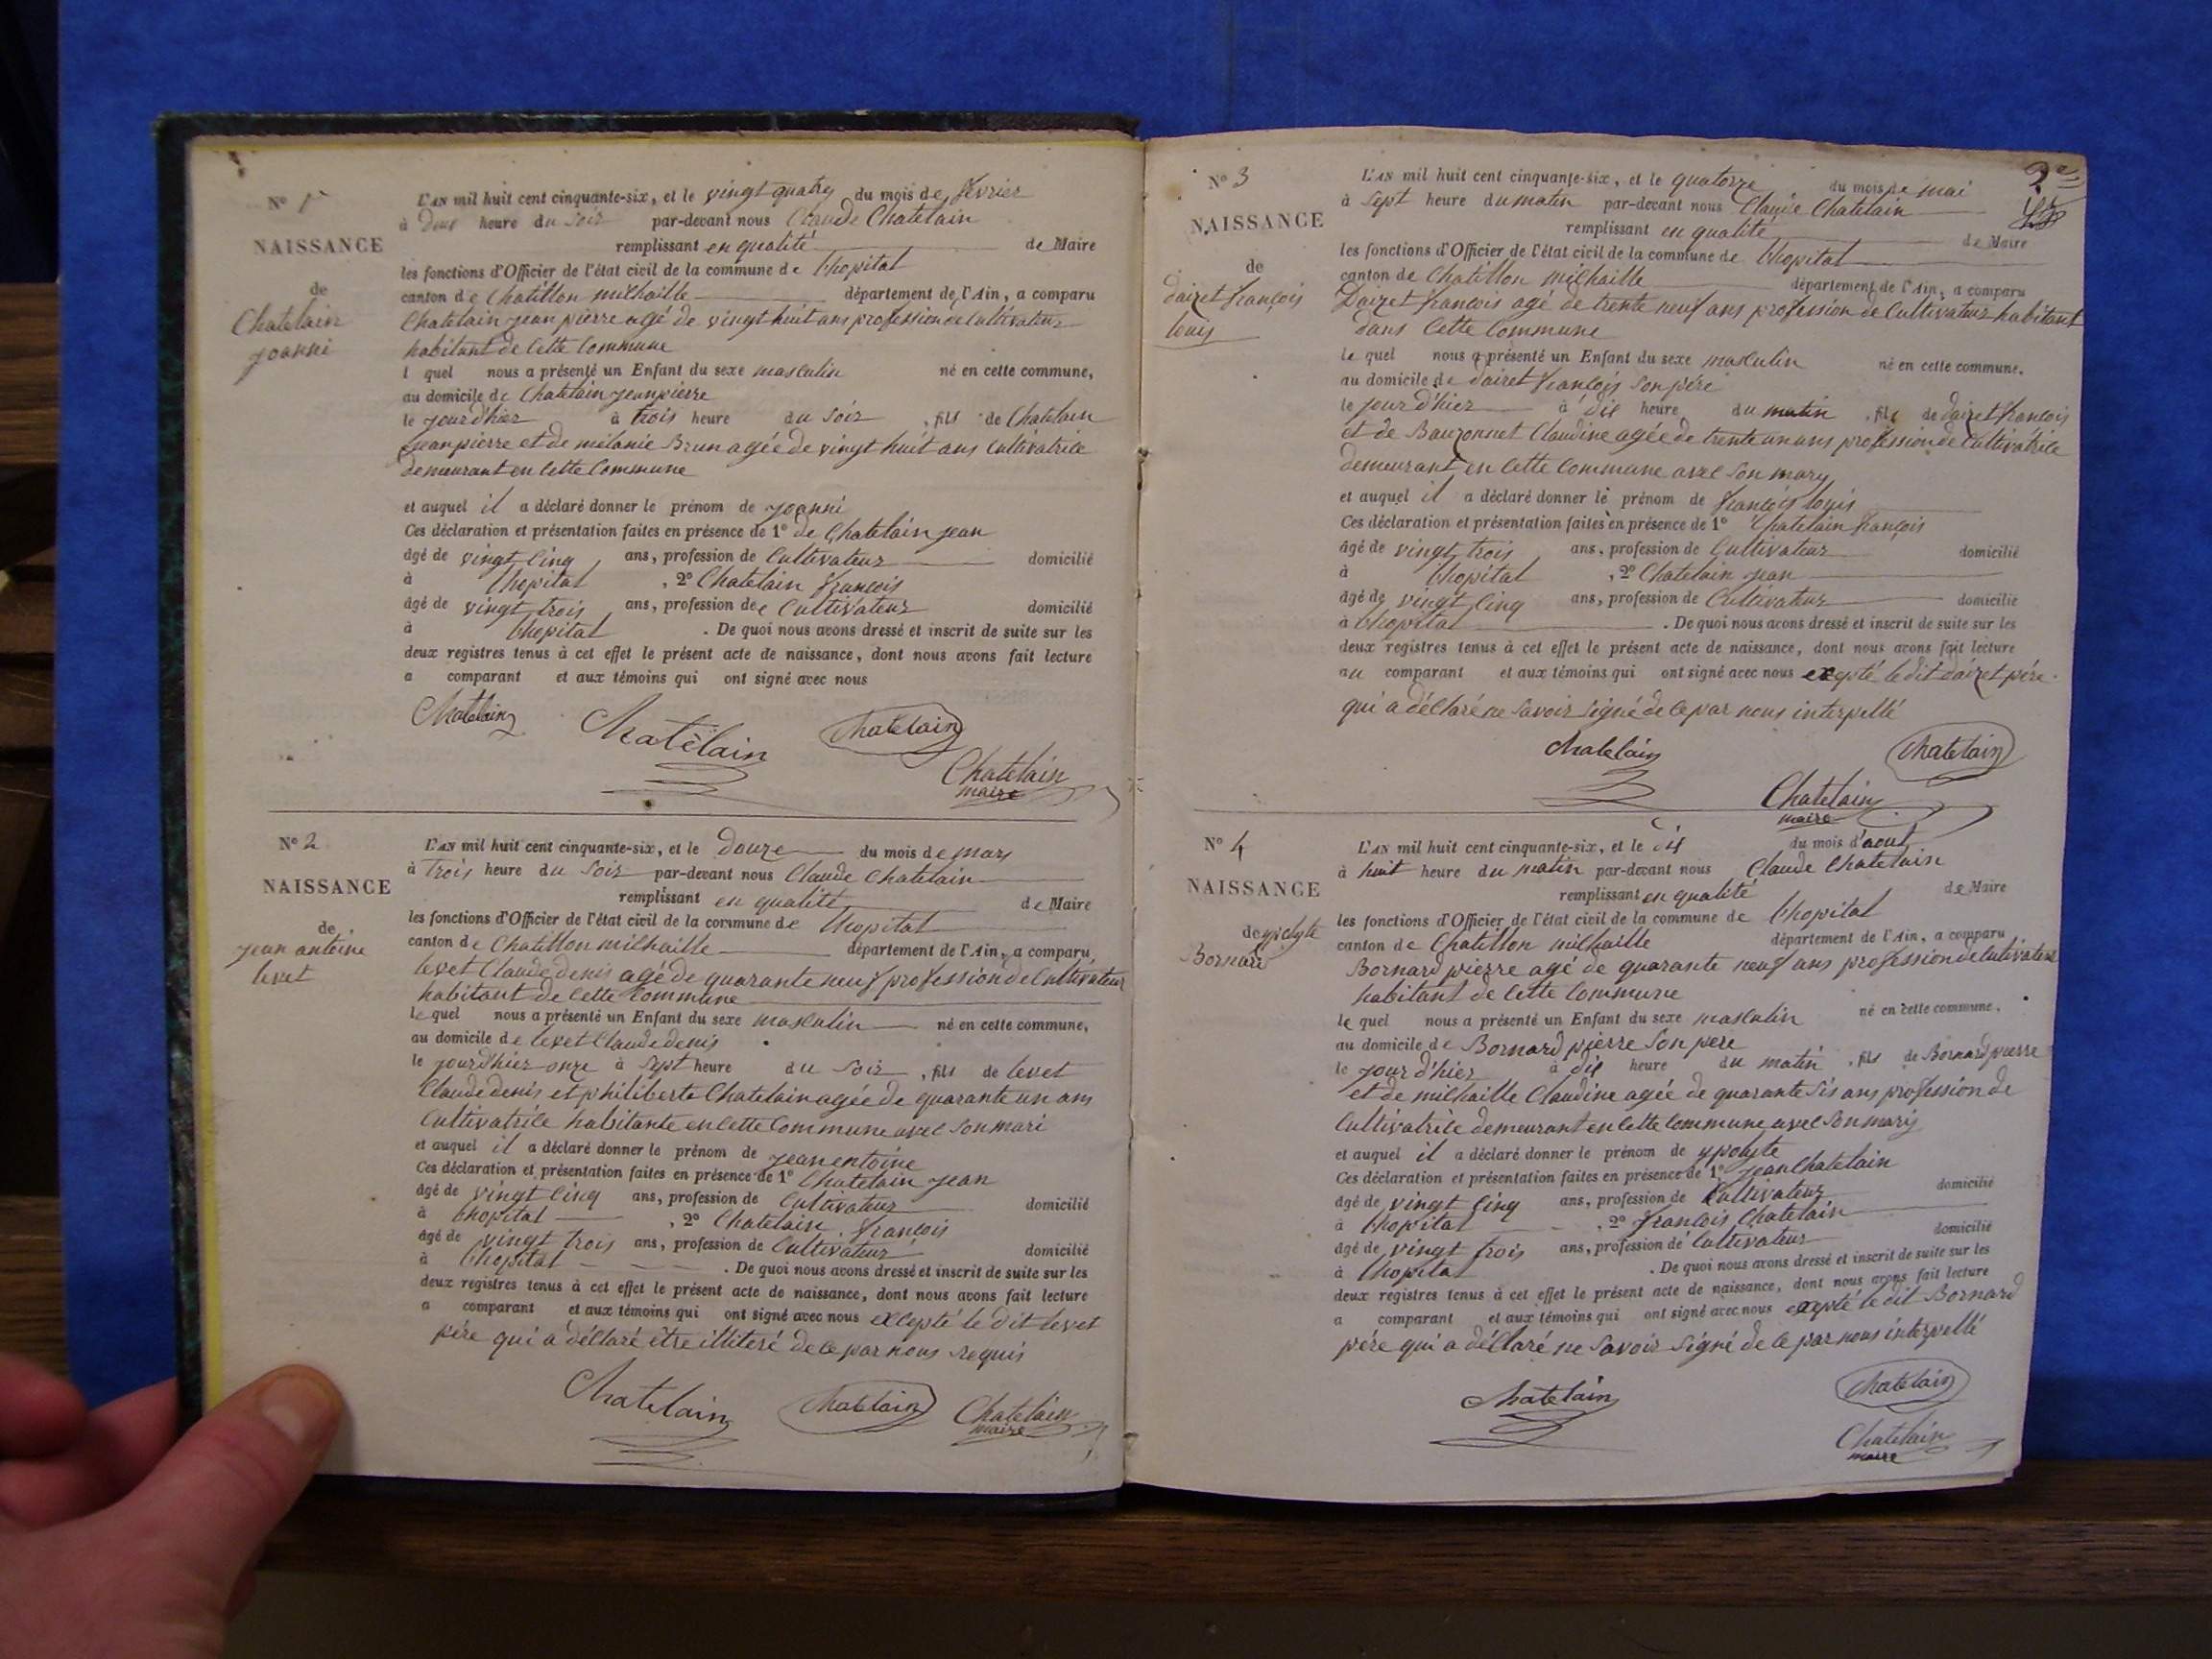 N° 1er
NAISSANCE
de
Chatelain
joanni
L'AN mil huit cent cinquante-six, et le vingt quatre du mois de fevrier
à deux heure du soir par-devant nous Claude Chatelain
remplissant en qualité de Maire
les fonctions d'Officier de l'état civil de la commune de lhopital
canton de Chatillon milhaille département de l'Ain, a comparu
Chatelain jean pierre agé de vingt huit ans profession de Cultivateur
habitant de Cette Commune
l quel nous a présenté un Enfant du sexe masculin né en cette commune,
au domicile de Chatelain jean pierre
le jour d'hier à trois heure du soir, fils de Chatelain
jean pierre et de mélanie Brun agée de vingt huit ans Cultivatrice
demeurant en Cette Commune
et auquel il a déclaré donner le prénom de joanni
Ces déclaration et présentation faites en présence de 1° de Chatelain jean
âgé de vingt cinq ans, profession de Cultivateur domicilié
à lhopital, 2° Chatelain françois
âgé de vingt trois ans, profession de Cultivateur domicilié
à lhopital. De quoi nous avons dressé et inscrit de suite sur les
deux registres tenus à cet effet le présent acte de naissance, dont nous avons fait lecture
a comparant et aux témoins qui ont signé avec nous
Chatelain Chatelain Chatelain
Chatelain
maire
N° 2
NAISSANCE
de
jean antoine
levet
L'AN mil huit cent cinquante-six, et le douze du mois de mars
à trois heure du soir par-devant nous Claude Chatelain
remplissant en qualité de Maire
les fonctions d'Officier de l'état civil de la commune de lhopital
canton de Chatillon milhaille département de l'Ain, a comparu
levet Claude denis agé de quarante neuf profession de Cultivateur
habitant de Cette Commune
le quel nous a présenté un Enfant du sexe masculin né en cette commune,
au domicile de levet Claude denis
le jour d'hier onze à sept heure du soir, fils de levet
Claude denis et philiberte Chatelain agée de quarante un ans
Cultivatrice habitante en Cette Commune avec son mari
et auquel il a déclaré donner le prénom de jean entoine
Ces déclaration et présentation faites en présence de 1° Chatelain jean
âgé de vingt cinq ans, profession de Cultivateur domicilié
à lhopital, 2° Chatelain françois
âgé de vingt trois ans, profession de Cultivateur domicilié
à lhopital. De quoi nous avons dressé et inscrit de suite sur les
deux registres tenus à cet effet le présent acte de naissance, dont nous avons fait lecture
a comparant et aux témoins qui ont signé avec nous excepté le dit levet
père qui a déclaré être illiteré de ce par nous requis
Chatelain Chatelain Chatelain
maire
2e
N° 3
NAISSANCE
de
dairet françois
louis
L'AN mil huit cent cinquante-six, et le quatorze du mois de mai
à sept heure du matin par-devant nous Claude Chatelain
remplissant en qualité de Maire
les fonctions d'Officier de l'état civil de la commune de lhopital
canton de Chatillon milhaille département de l'Ain, a comparu
Dairet francois agé de trente neuf ans profession de Cultivateur habitant
dans Cette Commune
le quel nous a présenté un Enfant du sexe masculin né en cette commune,
au domicile de dairet françois son père
le jour d'hier à dix heure du matin, fils de dairet françois
et de Bauzonnet Claudine agée de trente un ans profession de Cultivatrice
demeurant en Cette Commune avec son mary
et auquel il a déclaré donner le prénom de françois louis
Ces déclaration et présentation faites en présence de 1° Chatelain françois
âgé de vingt trois ans, profession de Cultivateur domicilié
à lhopital, 2° Chatelain jean
âgé de vingt cinq ans, profession de Cultivateur domicilié
à lhopital. De quoi nous avons dressé et inscrit de suite sur les
deux registres tenus à cet effet le présent acte de naissance, dont nous avons fait lecture
au comparant et aux témoins qui ont signé avec nous exepté le dit dairet père
qui a déclaré ne savoir signé de ce par nous interpellé
Chatelain Chatelain
Chatelain
maire
N° 4
NAISSANCE
de ypolyte
Bornard
L'AN mil huit cent cinquante-six, et le six du mois d'aout
à huit heure du matin par-devant nous Claude Chatelain
remplissant en qualité de Maire
les fonctions d'Officier de l'état civil de la commune de lhopital
canton de Chatillon milhaille département de l'Ain, a comparu
Bornard pierre agé de quarante neuf ans profession de Cultivateur
habitant de Cette Commune
le quel nous a présenté un Enfant du sexe masculin né en cette commune,
au domicile de Bornard pierre son pere
le jour d'hier à dix heure du matin, fils de Bornard pierre
et de milhaille Claudine agée de quarante sis ans profession de
Cultivatrice demeurant en Cette Commune avec son mary
et auquel il a déclaré donner le prénom de ypolyte
Ces déclaration et présentation faites en présence de 1° jean Chatelain
âgé de vingt cinq ans, profession de Cultivateur domicilié
à lhopital, 2° françois Chatelain
âgé de vingt trois ans, profession de Cultivateur domicilié
à lhopital. De quoi nous avons dressé et inscrit de suite sur les
deux registres tenus à cet effet le présent acte de naissance, dont nous avons fait lecture
a comparant et aux témoins qui ont signé avec nous exepté le dit Bornard
père qui a déclaré ne savoir signé de ce par nous interpellé
Chatelain Chatelain
Chatelain
maire